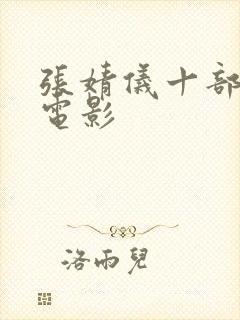 張婧儀十部
電影
洛雨兒